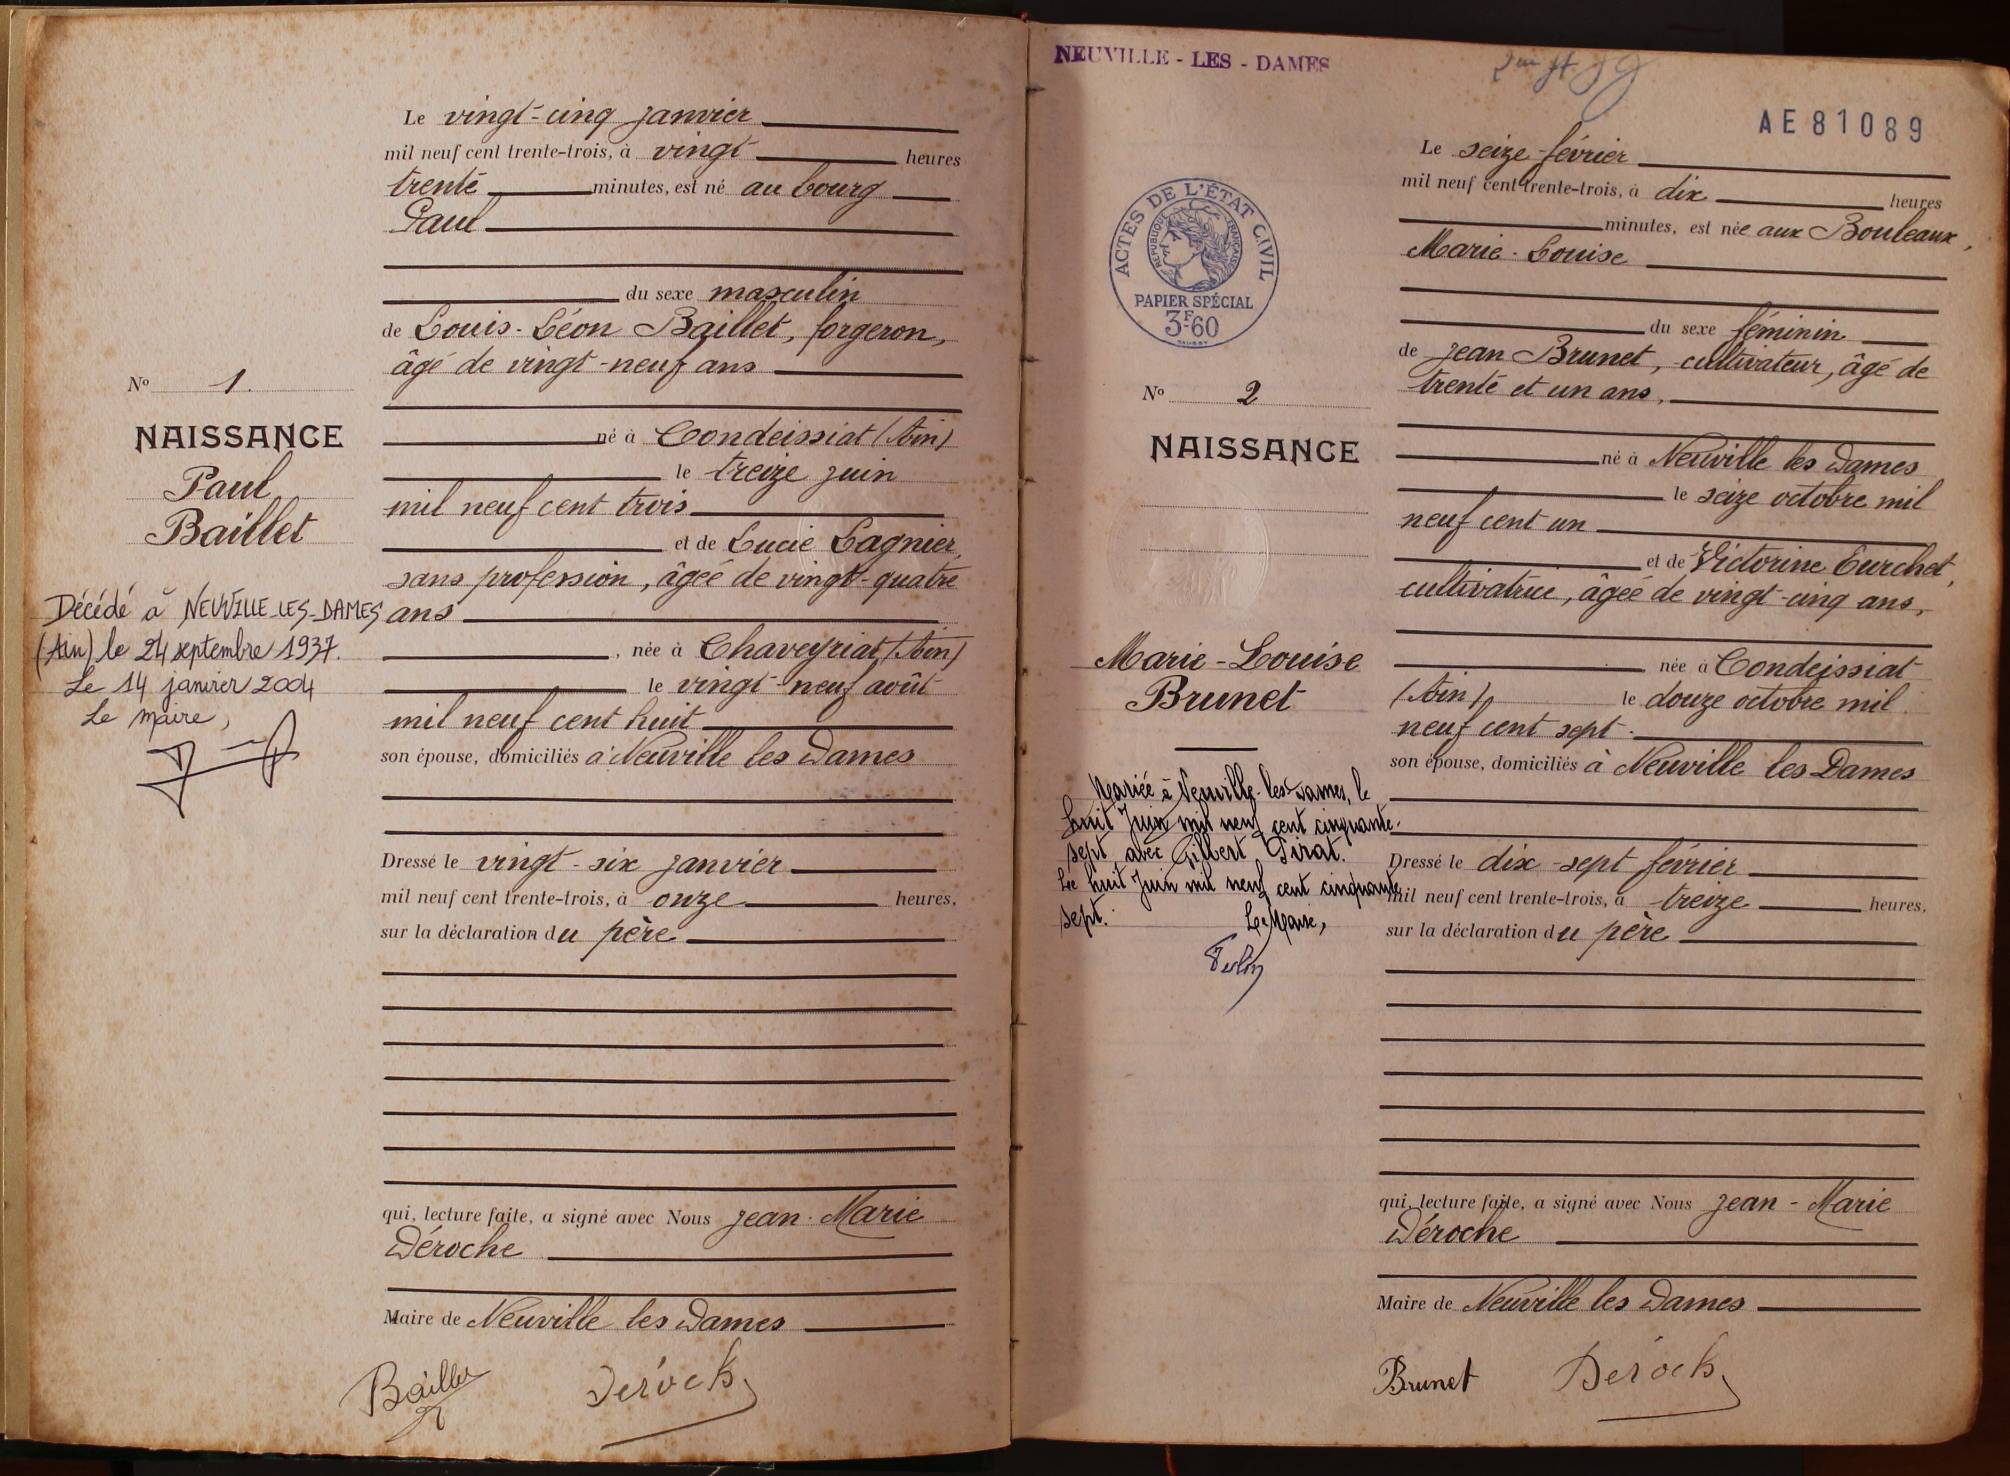 Le vingt-cinq janvier
mil neuf cent trente-trois, à vingt heures
trente minutes, est né au bourg
Paul
du sexe masculin
de Louis-Léon Baillet, forgeron,
âgé de vingt-neuf ans
né à Condeissiat (Ain)
le treize juin
mil neuf cent trois
et de Lucie Lagnier,
sans profession, âgée de vingt-quatre
ans
, née à Chaveyriat (Ain)
le vingt-neuf août
mil neuf cent huit
son épouse, domiciliés à Neuville les Dames
Dressé le vingt-six janvier
mil neuf cent trente-trois, à onze heures,
sur la déclaration du père
qui, lecture faite, a signé avec Nous Jean-Marie
Déroche
Maire de Neuville les Dames
Baillet
Déroch
No 1.
NAISSANCE
Paul
Baillet
Décédé à NEUVILLE-LES-DAMES
(Ain) le 24 septembre 1937.
Le 14 janvier 2004
Le maire,
NEUVILLE - LES - DAMES
AE81089
ACTES DE L'ÉTAT CIVIL
RÉPUBLIQUE FRANÇAISE
PAPIER SPÉCIAL
3F60
No 2
NAISSANCE
Marie-Louise
Brunet
Mariée à Neuville-les-Dames, le
huit Juin mil neuf cent cinquante-
sept, avec Gilbert Pirat.
Le huit Juin mil neuf cent cinquante
sept.
Le Maire,
Le seize février
mil neuf cent trente-trois, à dix heures
minutes, est née aux Bouleaux,
Marie-Louise
du sexe féminin
de Jean Brunet, cultivateur, âgé de
trente et un ans,
né à Neuville les Dames
le seize octobre mil
neuf cent un
et de Victorine Curchet,
cultivatrice, âgée de vingt-cinq ans,
née à Condeissiat
(Ain) le douze octobre mil
neuf cent sept.
son épouse, domiciliés à Neuville les Dames
Dressé le dix-sept février
mil neuf cent trente-trois, à treize heures,
sur la déclaration du père
qui, lecture faite, a signé avec Nous Jean-Marie
Déroche
Maire de Neuville les Dames
Brunet
Déroch